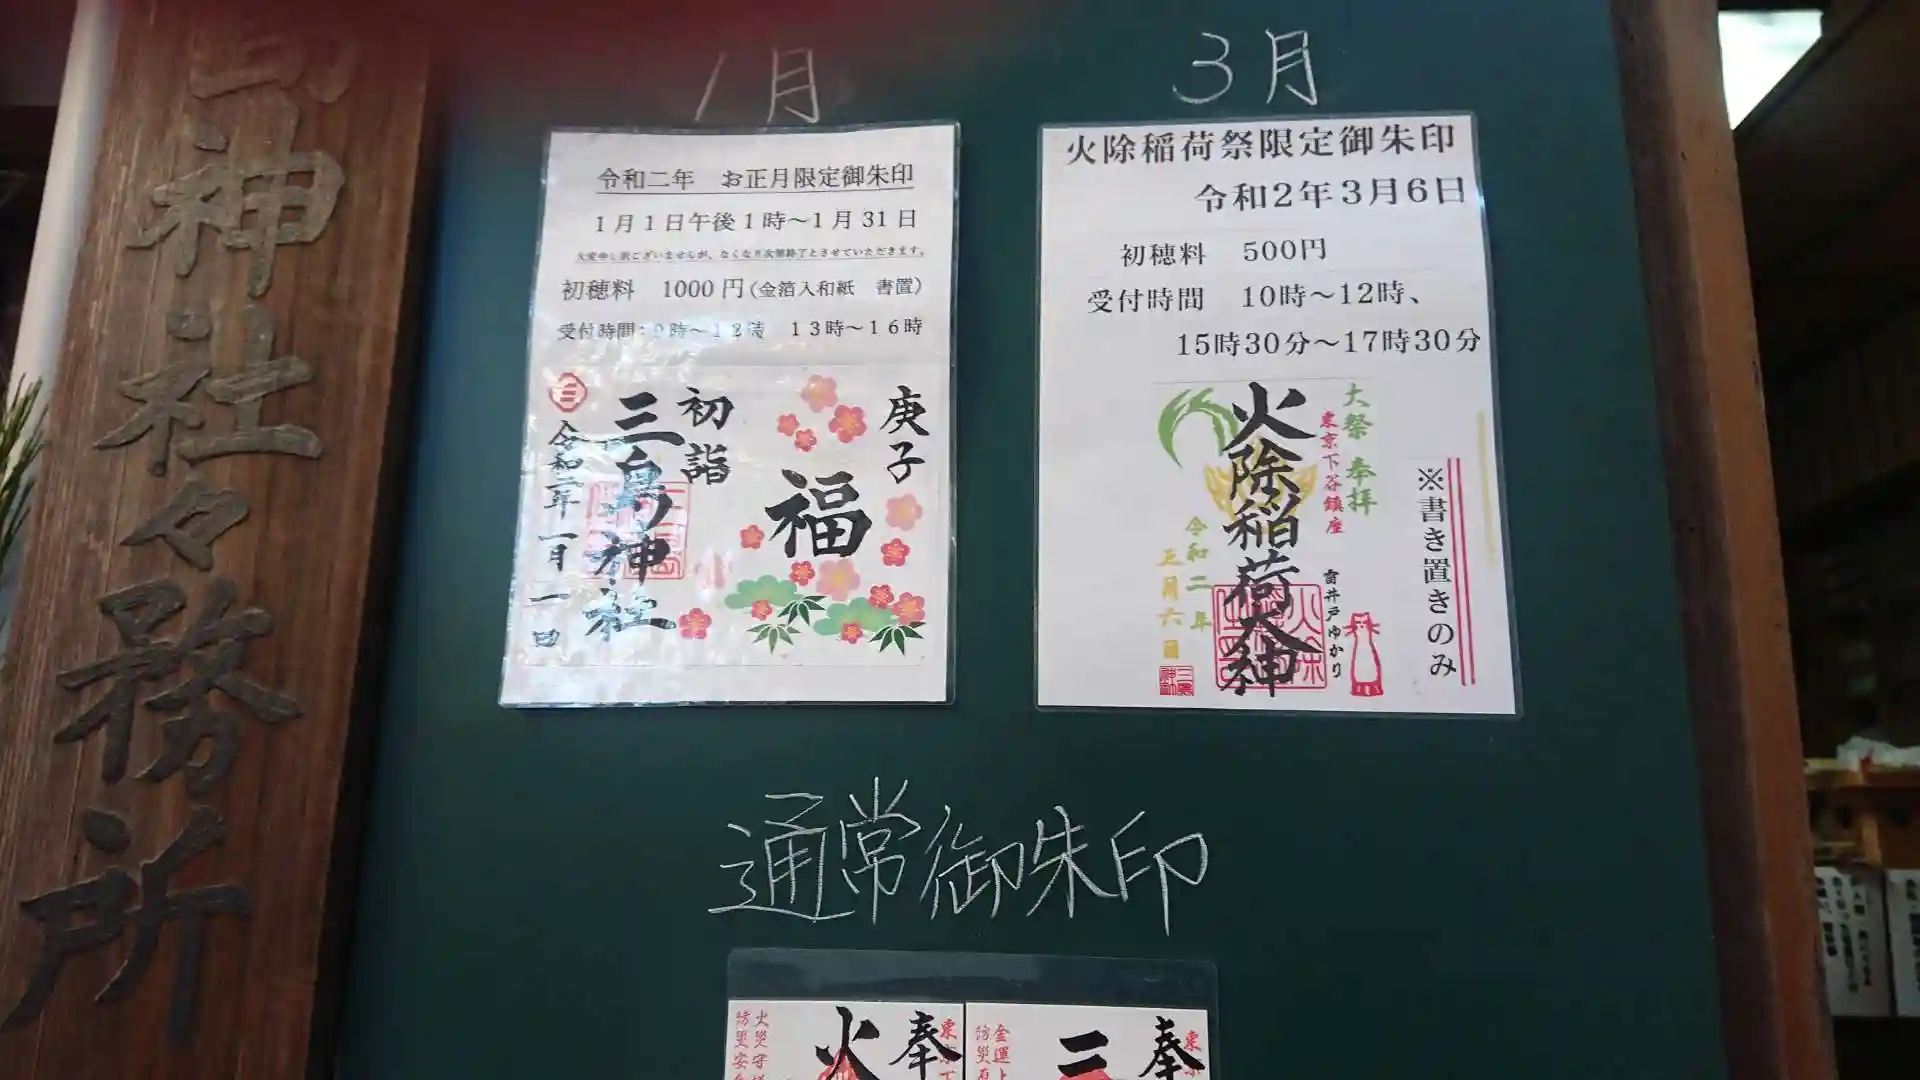 神社々務所
1月
令和二年 お正月限定御朱印
1月1日午後1時～1月31日
大変申し訳ございませんが、なくなり次第終了とさせていただきます。
初穂料 1000円(金箔入和紙 書置)
受付時間:9時～12時 13時～16時
庚子
福
初詣
三島神社
令和二年一月一日
3月
火除稲荷祭限定御朱印
令和2年3月6日
初穂料 500円
受付時間 10時～12時、
15時30分～17時30分
※書き置きのみ
大祭 奉拝
東京下谷鎮座
雷井戸ゆかり
火除稲荷大神
令和二年
三月六日
通常御朱印
奉
火
火災守
防災安
奉
三
金運上
防災